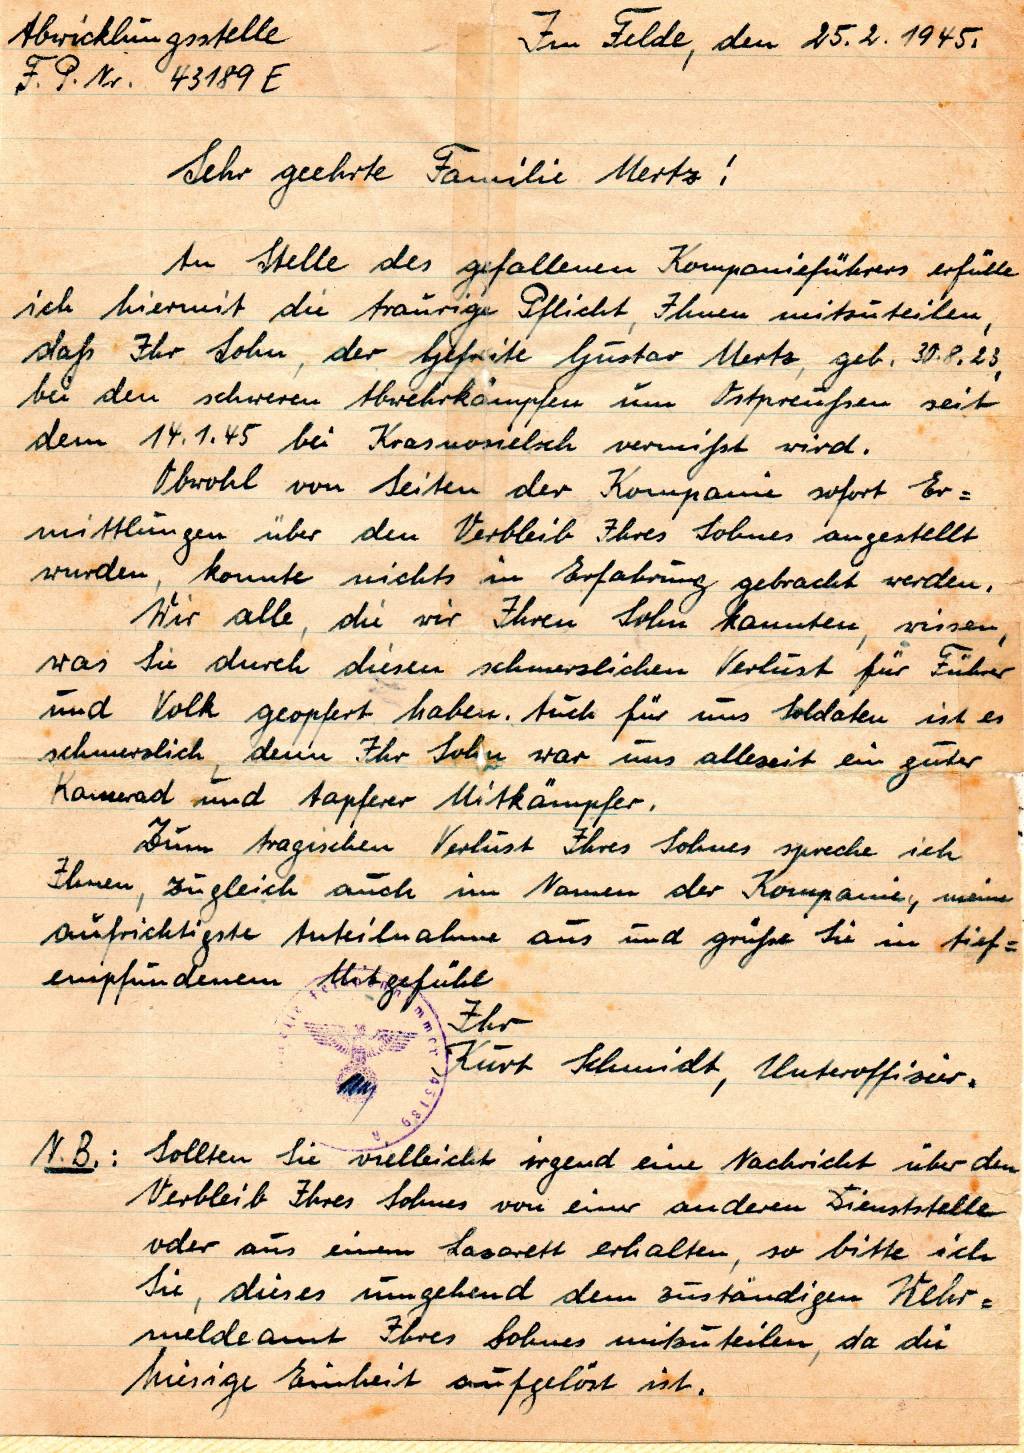 Abwicklungsstelle
F. P. Nr. 43189 E
Im Felde, den 25.2.1945.
Sehr geehrte Familie Mertz!
An Stelle des gefallenen Kompanieführers erfülle
ich hiermit die traurige Pflicht, Ihnen mitzuteilen,
daß Ihr Sohn, der Gefreite Gustav Mertz, geb. 30.8.23,
bei den schweren Abwehrkämpfen um Ostpreußen seit
dem 14.1.45 bei Krasnosielsch vermißt wird.
Obwohl von Seiten der Kompanie sofort Er=
mittlungen über den Verbleib Ihres Sohnes angestellt
wurden, konnte nichts in Erfahrung gebracht werden.
Wir alle, die wir Ihren Sohn kannten, wissen,
was Sie durch diesen schmerzlichen Verlust für Führer
und Volk geopfert haben. Auch für uns Soldaten ist es
schmerzlich, denn Ihr Sohn war uns allezeit ein guter
Kamerad und tapferer Mitkämpfer.
Zum tragischen Verlust Ihres Sohnes spreche ich
Ihnen, zugleich auch im Namen der Kompanie, meine
aufrichtigste Anteilnahme aus und grüße Sie in tief=
empfundenem Mitgefühl
Ihr
Kurt Schmidt, Unteroffizier.
43189
N.B.: Sollten Sie vielleicht irgend eine Nachricht über den
Verbleib Ihres Sohnes von einer anderen Dienststelle
oder aus einem Lazarett erhalten, so bitte ich
Sie, dieses umgehend dem zuständigen Wehr=
meldeamt Ihres Sohnes mitzuteilen, da die
hiesige Einheit aufgelöst ist.